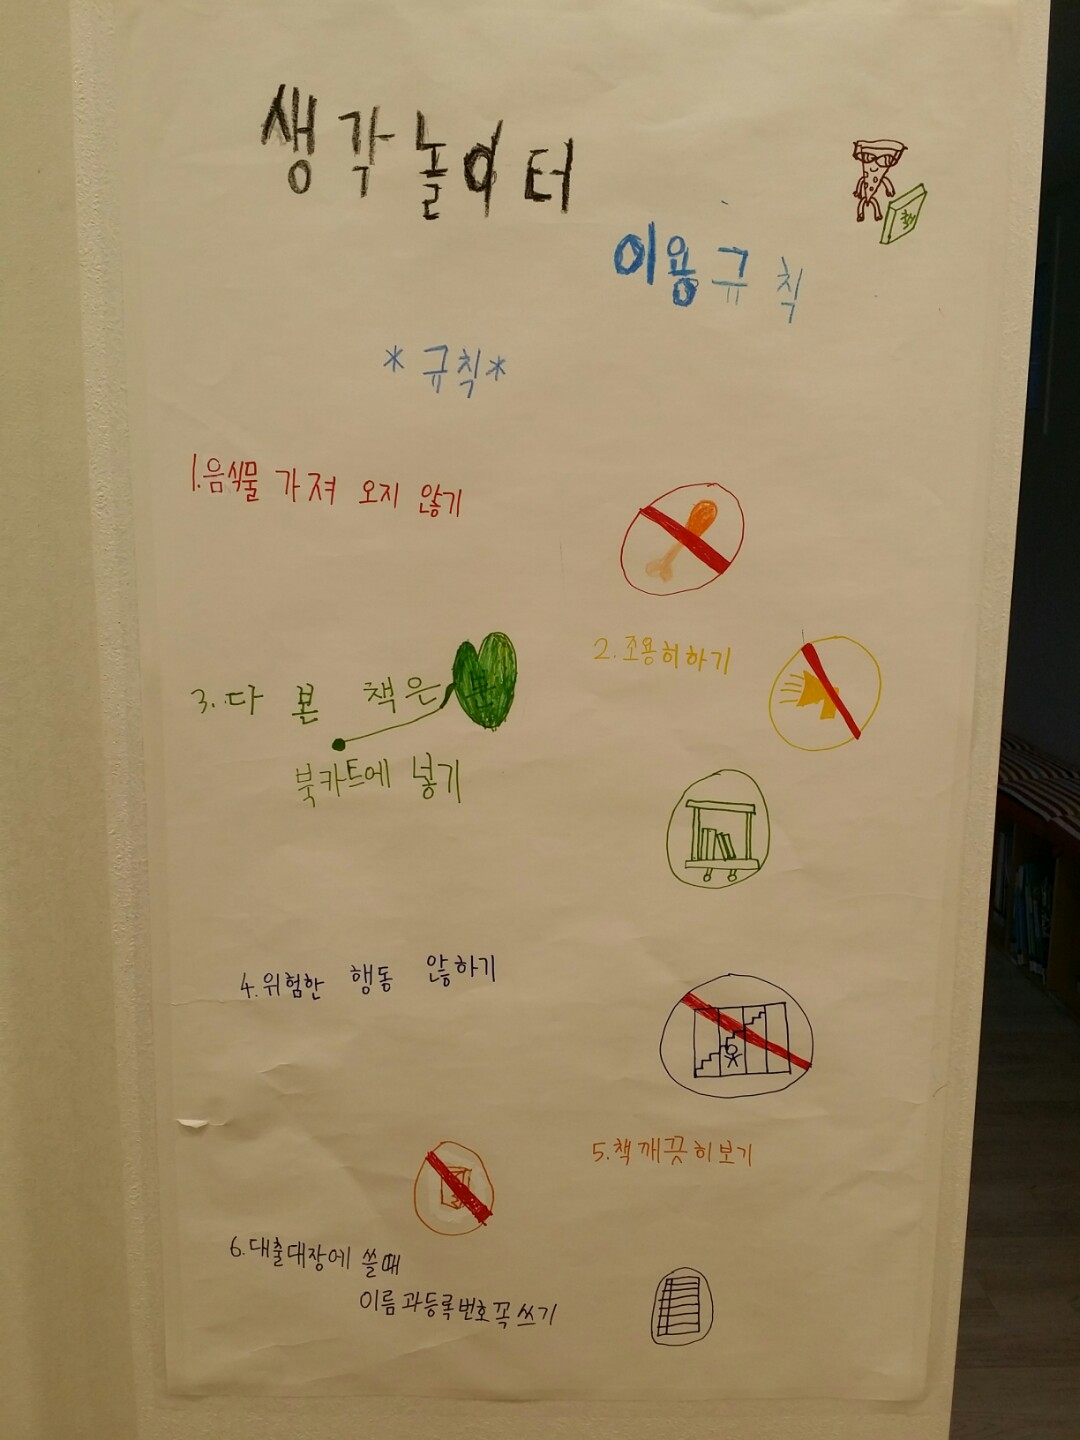 생각놀이터
이용규칙
*규칙*
1.음식물 가져 오지 않기
2.조용히하기
3.다 본 책은
북카트에 넣기
4.위험한 행동 않하기
5.책깨끗히보기
6.대출대장에 쓸때
이름과등록번호꼭쓰기